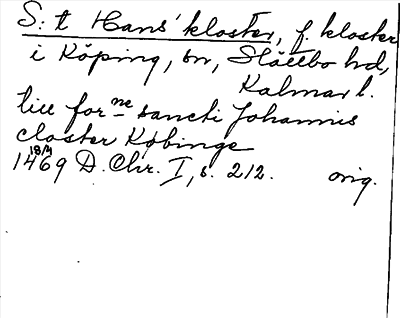 S:t Hans' kloster, f. kloster
i Köping, sn, Slättbo hd,
Kalmar l.
till forne sancti Johannis
closter Købinge
1469 18/4 D. Chr. I, s. 212. orig.